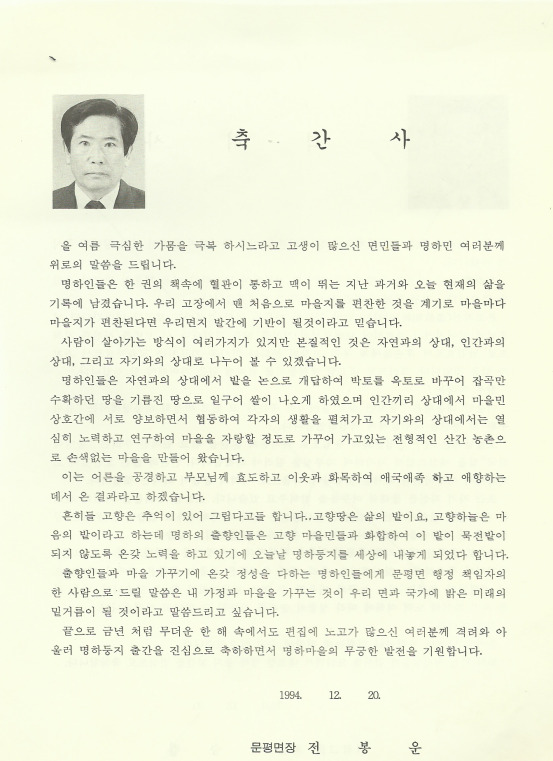 축 간 사
올 여름 극심한 가뭄을 극복 하시느라고 고생이 많으신 면민들과 명하민 여러분께
위로의 말씀을 드립니다.
명하인들은 한 권의 책속에 혈관이 통하고 맥이 뛰는 지난 과거와 오늘 현재의 삶을
기록에 남겼습니다. 우리 고장에서 맨 처음으로 마을지를 편찬한 것을 계기로 마을마다
마을지가 편찬된다면 우리면지 발간에 기반이 될것이라고 믿습니다.
사람이 살아가는 방식이 여러가지가 있지만 본질적인 것은 자연과의 상대, 인간과의
상대, 그리고 자기와의 상대로 나누어 볼 수 있겠습니다.
명하인들은 자연과의 상대에서 밭을 논으로 개답하여 박토를 옥토로 바꾸어 잡곡만
수확하던 땅을 기름진 땅으로 일구어 쌀이 나오게 하였으며 인간끼리 상대에서 마을민
상호간에 서로 양보하면서 협동하여 각자의 생활을 펼쳐가고 자기와의 상대에서는 열
심히 노력하고 연구하여 마을을 자랑할 정도로 가꾸어 가고있는 전형적인 산간 농촌으
로 손색없는 마을을 만들어 왔습니다.
이는 어른을 공경하고 부모님께 효도하고 이웃과 화목하여 애국애족 하고 애향하는
데서 온 결과라고 하겠습니다.
흔히들 고향은 추억이 있어 그립다고들 합니다..고향땅은 삶의 밭이요, 고향하늘은 마
음의 밭이라고 하는데 명하의 출향인들은 고향 마을민들과 화합하여 이 밭이 묵전밭이
되지 않도록 온갖 노력을 하고 있기에 오늘날 명하둥지를 세상에 내놓게 되었다 합니다.
출향인들과 마을 가꾸기에 온갖 정성을 다하는 명하인들에게 문평면 행정 책임자의
한 사람으로 드릴 말씀은 내 가정과 마을을 가꾸는 것이 우리 면과 국가에 밝은 미래의
밑거름이 될 것이라고 말씀드리고 싶습니다.
끝으로 금년 처럼 무더운 한 해 속에서도 편집에 노고가 많으신 여러분께 격려와 아
울러 명하둥지 출간을 진심으로 축하하면서 명하마을의 무궁한 발전을 기원합니다.
1994. 12. 20.
문평면장 전 봉 운